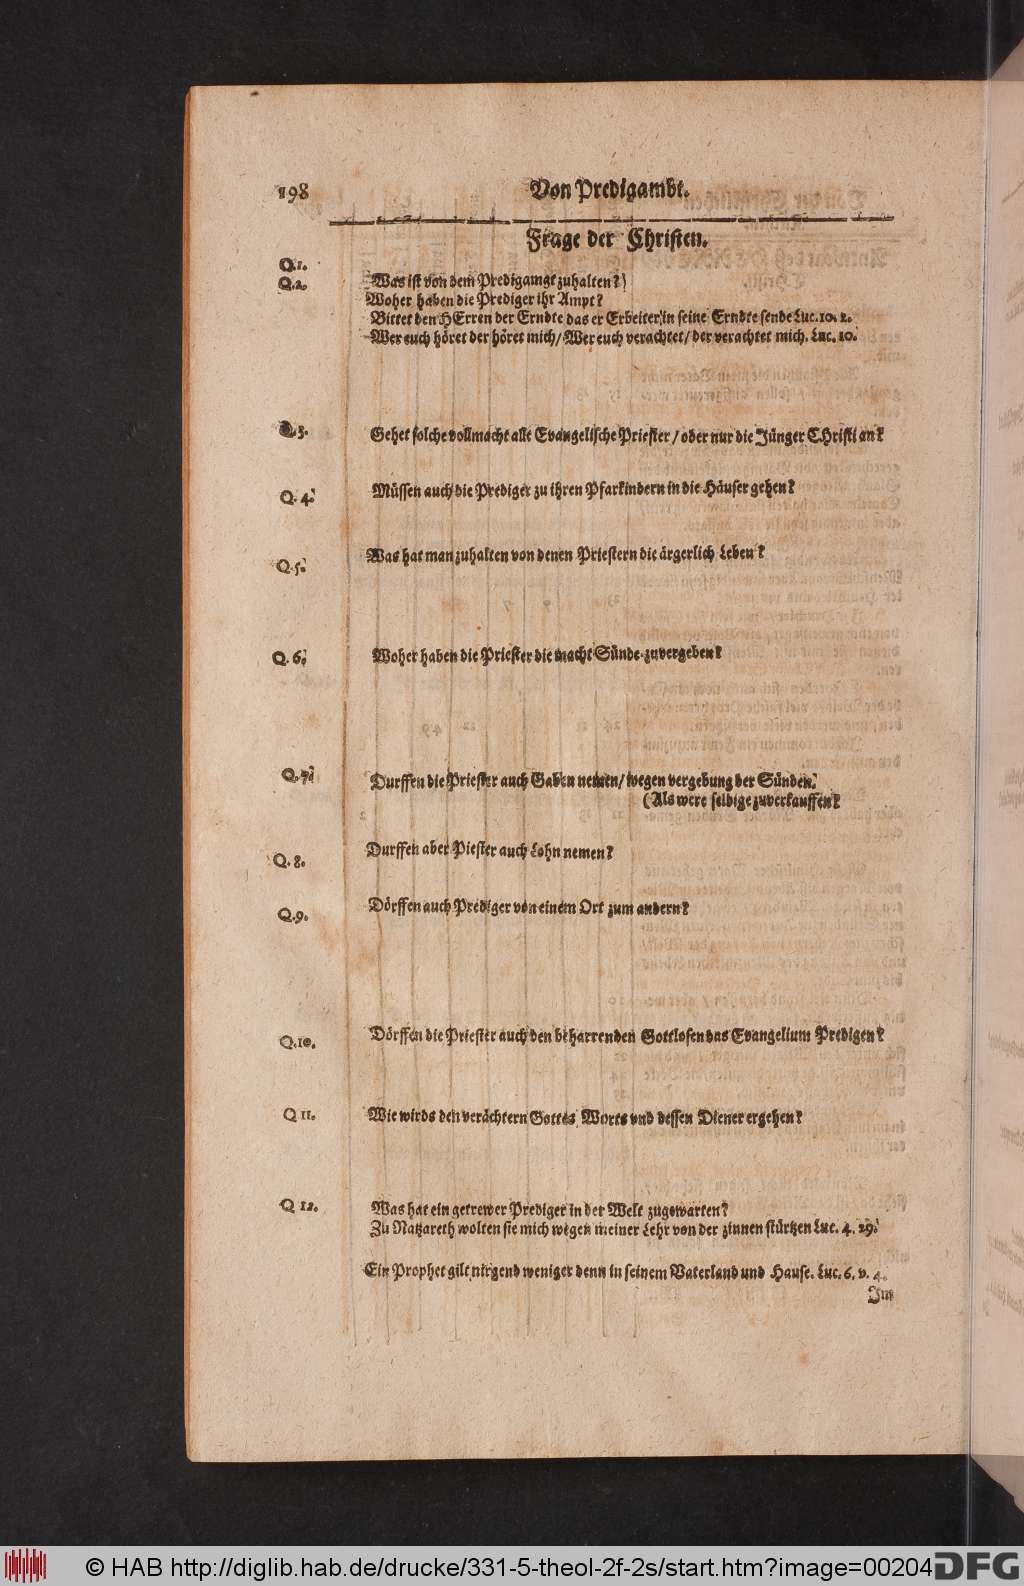 198 Von Predigambt.
Frage der Christen.
Q.1.
Q.2. Was ist von dem Predigampt zuhalten?)
Woher haben die Prediger ihr Ampt?
Bittet den HErren der Erndte das er Erbeiter in seine Erndte sende Luc. 10. 2.
Wer euch höret der höret mich/ Wer euch verachtet/ der verachtet mich. Luc. 10.
Q.3. Gehet solche vollmacht alle Evangelische Priester / oder nur die Jünger CHristi an?
Q. 4. Müssen auch die Prediger zu ihren Pfarkindern in die Häuser gehen?
Q.5. Was hat man zuhalten von denen Priestern die ärgerlich Leben?
Q. 6. Woher haben die Priester die macht Sünde zuvergeben?
Q. 7. Durffen die Priester auch Gaben nemen/ wegen vergebung der Sünden.
(Als were selbige zuverkauffen?
Q. 8. Durffen aber Piester auch Lohn nemen?
Q.9. Dörffen auch Prediger von einem Ort zum andern?
Q.10. Dörffen die Priester auch den beharrenden Gottlosen das Evangelium Predigen?
Q 11. Wie wirds den verächtern Gottes Worts vnd dessen Diener ergehen?
Q 12. Was hat ein getrewer Prediger in der Welt zugewarten?
Zu Natzareth wolten sie mich wegen meiner Lehr von der zinnen stürtzen Luc. 4. 29.
Ein Prophet gilt nirgend weniger denn in seinem Vaterland und Hause. Luc. 6. v. 4.
Im
© HAB http://diglib.hab.de/drucke/331-5-theol-2f-2s/start.htm?image=00204
DFG